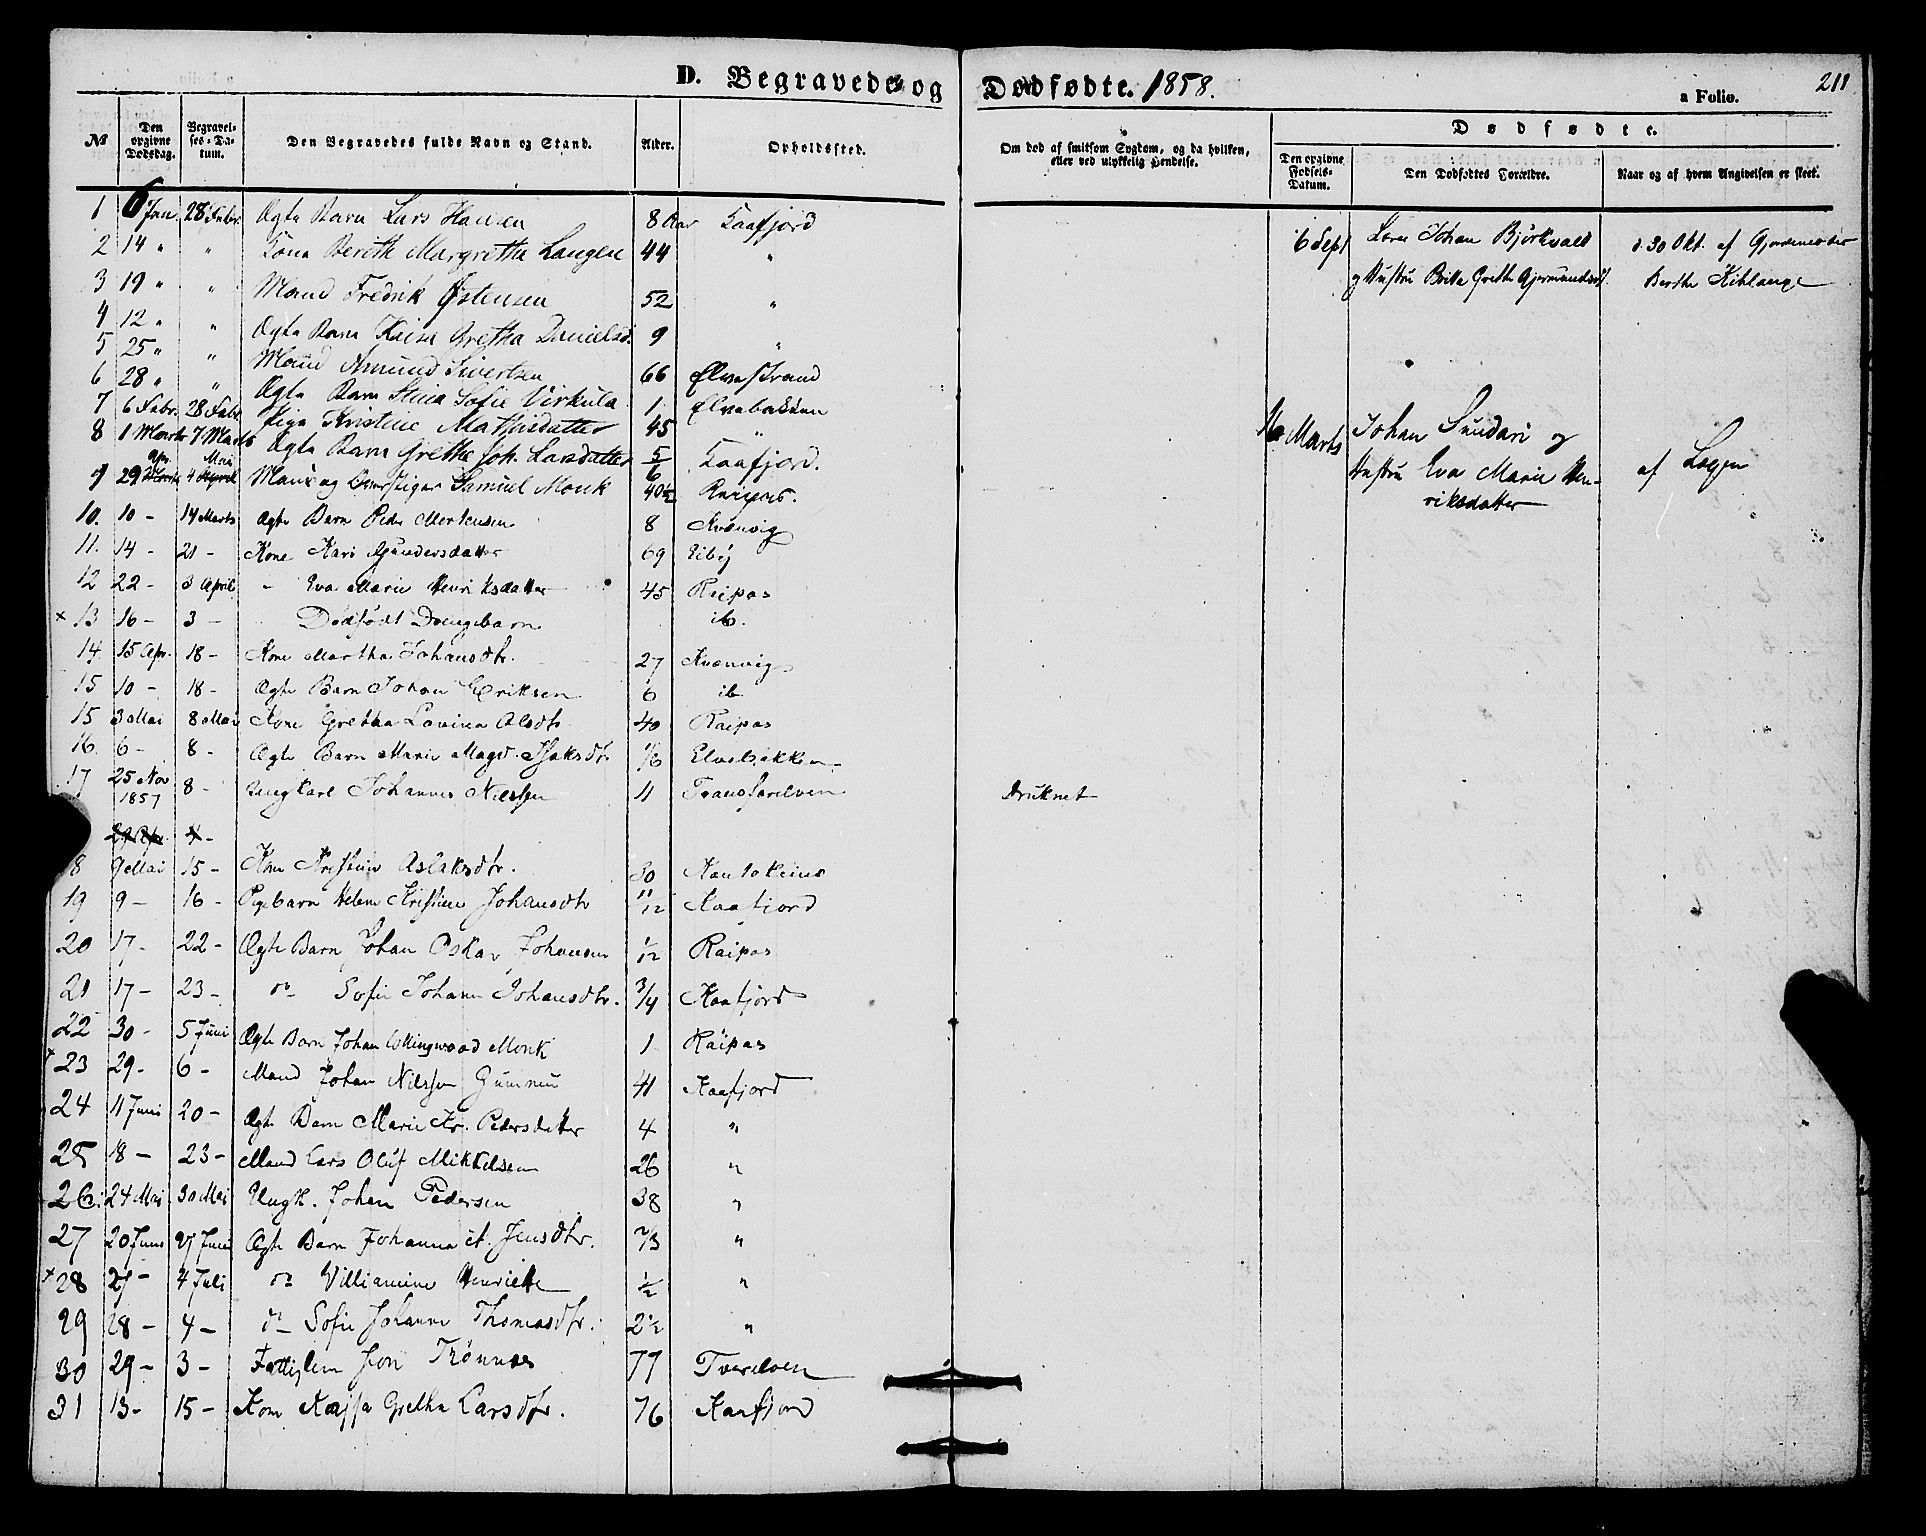 D. Begravede og Dødfødte. 1858.
211
a Folio.
№
Den opgivne Dødsdag.
Begravelses-Datum.
Den Begravedes fulde Navn og Stand.
Alder.
Opholdssted.
Om død af smitsom Sygdom, og da hvilken, eller ved ulykkelig Hendelse.
Dødfødte.
Den opgivne Fødsels-Datum.
Den Dødfødtes Forældre.
Naar og af hvem Angivelsen er skeet.
1 6 Jan. 28 Febr. Ægte Barn Lars Hansen 8 Aar Kaafjord
2 14 " " Kone Berith Margretha Langen 44 "
3 19 " " Mand Fredrik Østensen 52 "
4 12 " " Ægte Barn Kaisa Gretha Danielsd. 9 "
5 25 " " Mand Amund Sivertsen 66 Elvestrand
6 28 " " Ægte Barn Stina Sofie Virkula 1 Elvebakken
7 6 Febr. 28 Febr. Pige Kristine Mathisdatter 45 "
8 1 Marts 7 Marts Ægte Barn Grethe Joh. Larsdatter 5/6 Kaafjord.
9 29 Apr. 4 Mai Mand og Samuel Monk 40½ Raipas.
10. 10 - 14 Marts Ægte Barn Peder Mortensen 8 Kvænvig
11. 14 - 21 - Kone Kari Gundersdatter 69 Eiby
12 22 - 3 April - Eva Marie Henriksdatter 45 Raipas
× 13 16 - 3 - Dødfødt Drengebarn ib.
14. 15 Apr. 18 - Kone Martha Johansdtr. 27 Kvænvig
15 10 - 18 - Ægte Barn Johan Eriksen 6 ib
15 3 Mai 8 Mai Kone Gretha Lovina Olsdtr. 40 Raipas
16. 6 - 8 - Ægte Barn Marie Magd. Isaksdtr. 1/6 Elvebakken
17 25 Nov 1857 8 - Ungkarl Johannes Nilssen 11 Tranfarelven druknet
29 Apr. 4 -
18 9 Mai 15 - Kone Kristine Aslaksdtr. 30 Kautokeino
19 9 - 16 - Pigebarn Helene Kristine Johansdtr 11/12 Kaafjord
20 17 - 22 - Ægte Barn Johan Oskar Johansen 1/12 Raipas
21 17 - 23 - do Sofie Johanne Johansdtr. 3/4 Kaafjord
22 30 - 5 Juni Ægte Barn Johan Collingwood Monk 1 Raipas
× 23 29 - 6 - Mand Johan Nilssen 41 Kaafjord
24 11 Juni 20 - Ægte Barn Marie Kr. Pedersdatter 4 "
25 18 - 23 - Mand Lars Oluf Mikkelsen 26 "
26. 24 Mai 30 Mai Ungk. Johan Pedersen 38 "
27 20 Juni 27 Juni Ægte Barn Johanna M. Jensdtr. 2/3 "
× 28 27 - 4 Juli do Villiamine Henriette 1/2 "
29 28 - 4 - do Sofie Johanne Thomasdtr. 2½ "
30 29 - 3 - Fattiglem Jon Trönnes 77 Tverelven
31 13 - 15 - Kone Kajsa Gretha Larsdtr. 76 Kaafjord
6 Sept Johan Björkvald d. 30 Okt. af Gjordemoder
og Hustru Britta Grethe Gjermundsd. Berthe Kihlange
16 Marts Johan Sundari og
Hustru Eva Marie Henriksdatter
af